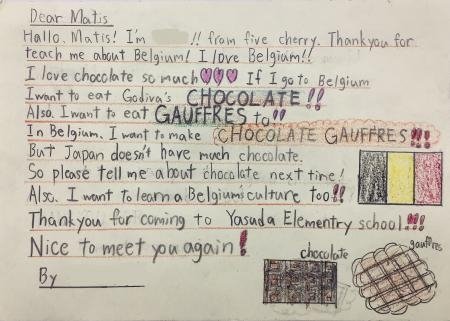 Dear Matis
Hallo. Matis! I'm !! from five cherry. Thankyou for
teach me about Belgium! I love Belgium!!
I love chocolate so much If I go to Belgium
I want to eat Godiva's CHOCOLATE!!
Also. I want to eat GAUFFRES to!!
In Belgium. I want to make CHOCOLATE GAUFFRES!!!
But Japan doesn't have much chocolate.
So please tell me about chocolate next time!
Also. I want to learn a Belgium's culture too!!
Thankyou for coming to Yasuda Elementry school!!!
Nice to meet you again!
By
chocolate
gauffres